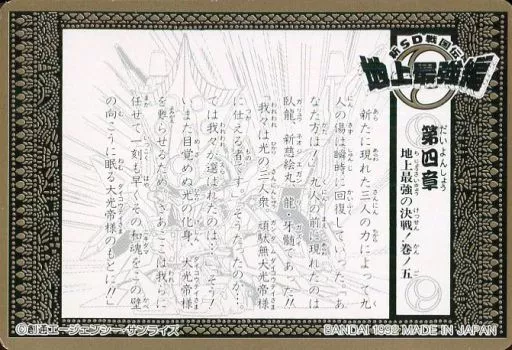 新SD戦国伝
地上最強編
第四章
だいよんしょう
地上最強の決戦!巻ノ五
ちじょうさいきょう けっせん
新たに現れた三人の力によって九
人の傷は瞬時に回復していった。あ
なた方は?! 九人の前に現れたのは
臥龍、新慈絵丸、龍・牙髄であった!!
「我々は光の三人衆、頑駄無大光帝様
に仕える者です。」そうだったのか…
ては我々が選ばれたのは…「そう!
いまだ目覚めぬ光の化身、大光帝様
を甦らせるため…さあここは我らに
任せて一刻も早くその和魂をこの壁
の向こうに眠る大光帝様のもとに!!」
©創通エージェンシー・サンライズ
BANDAI 1992 MADE IN JAPAN